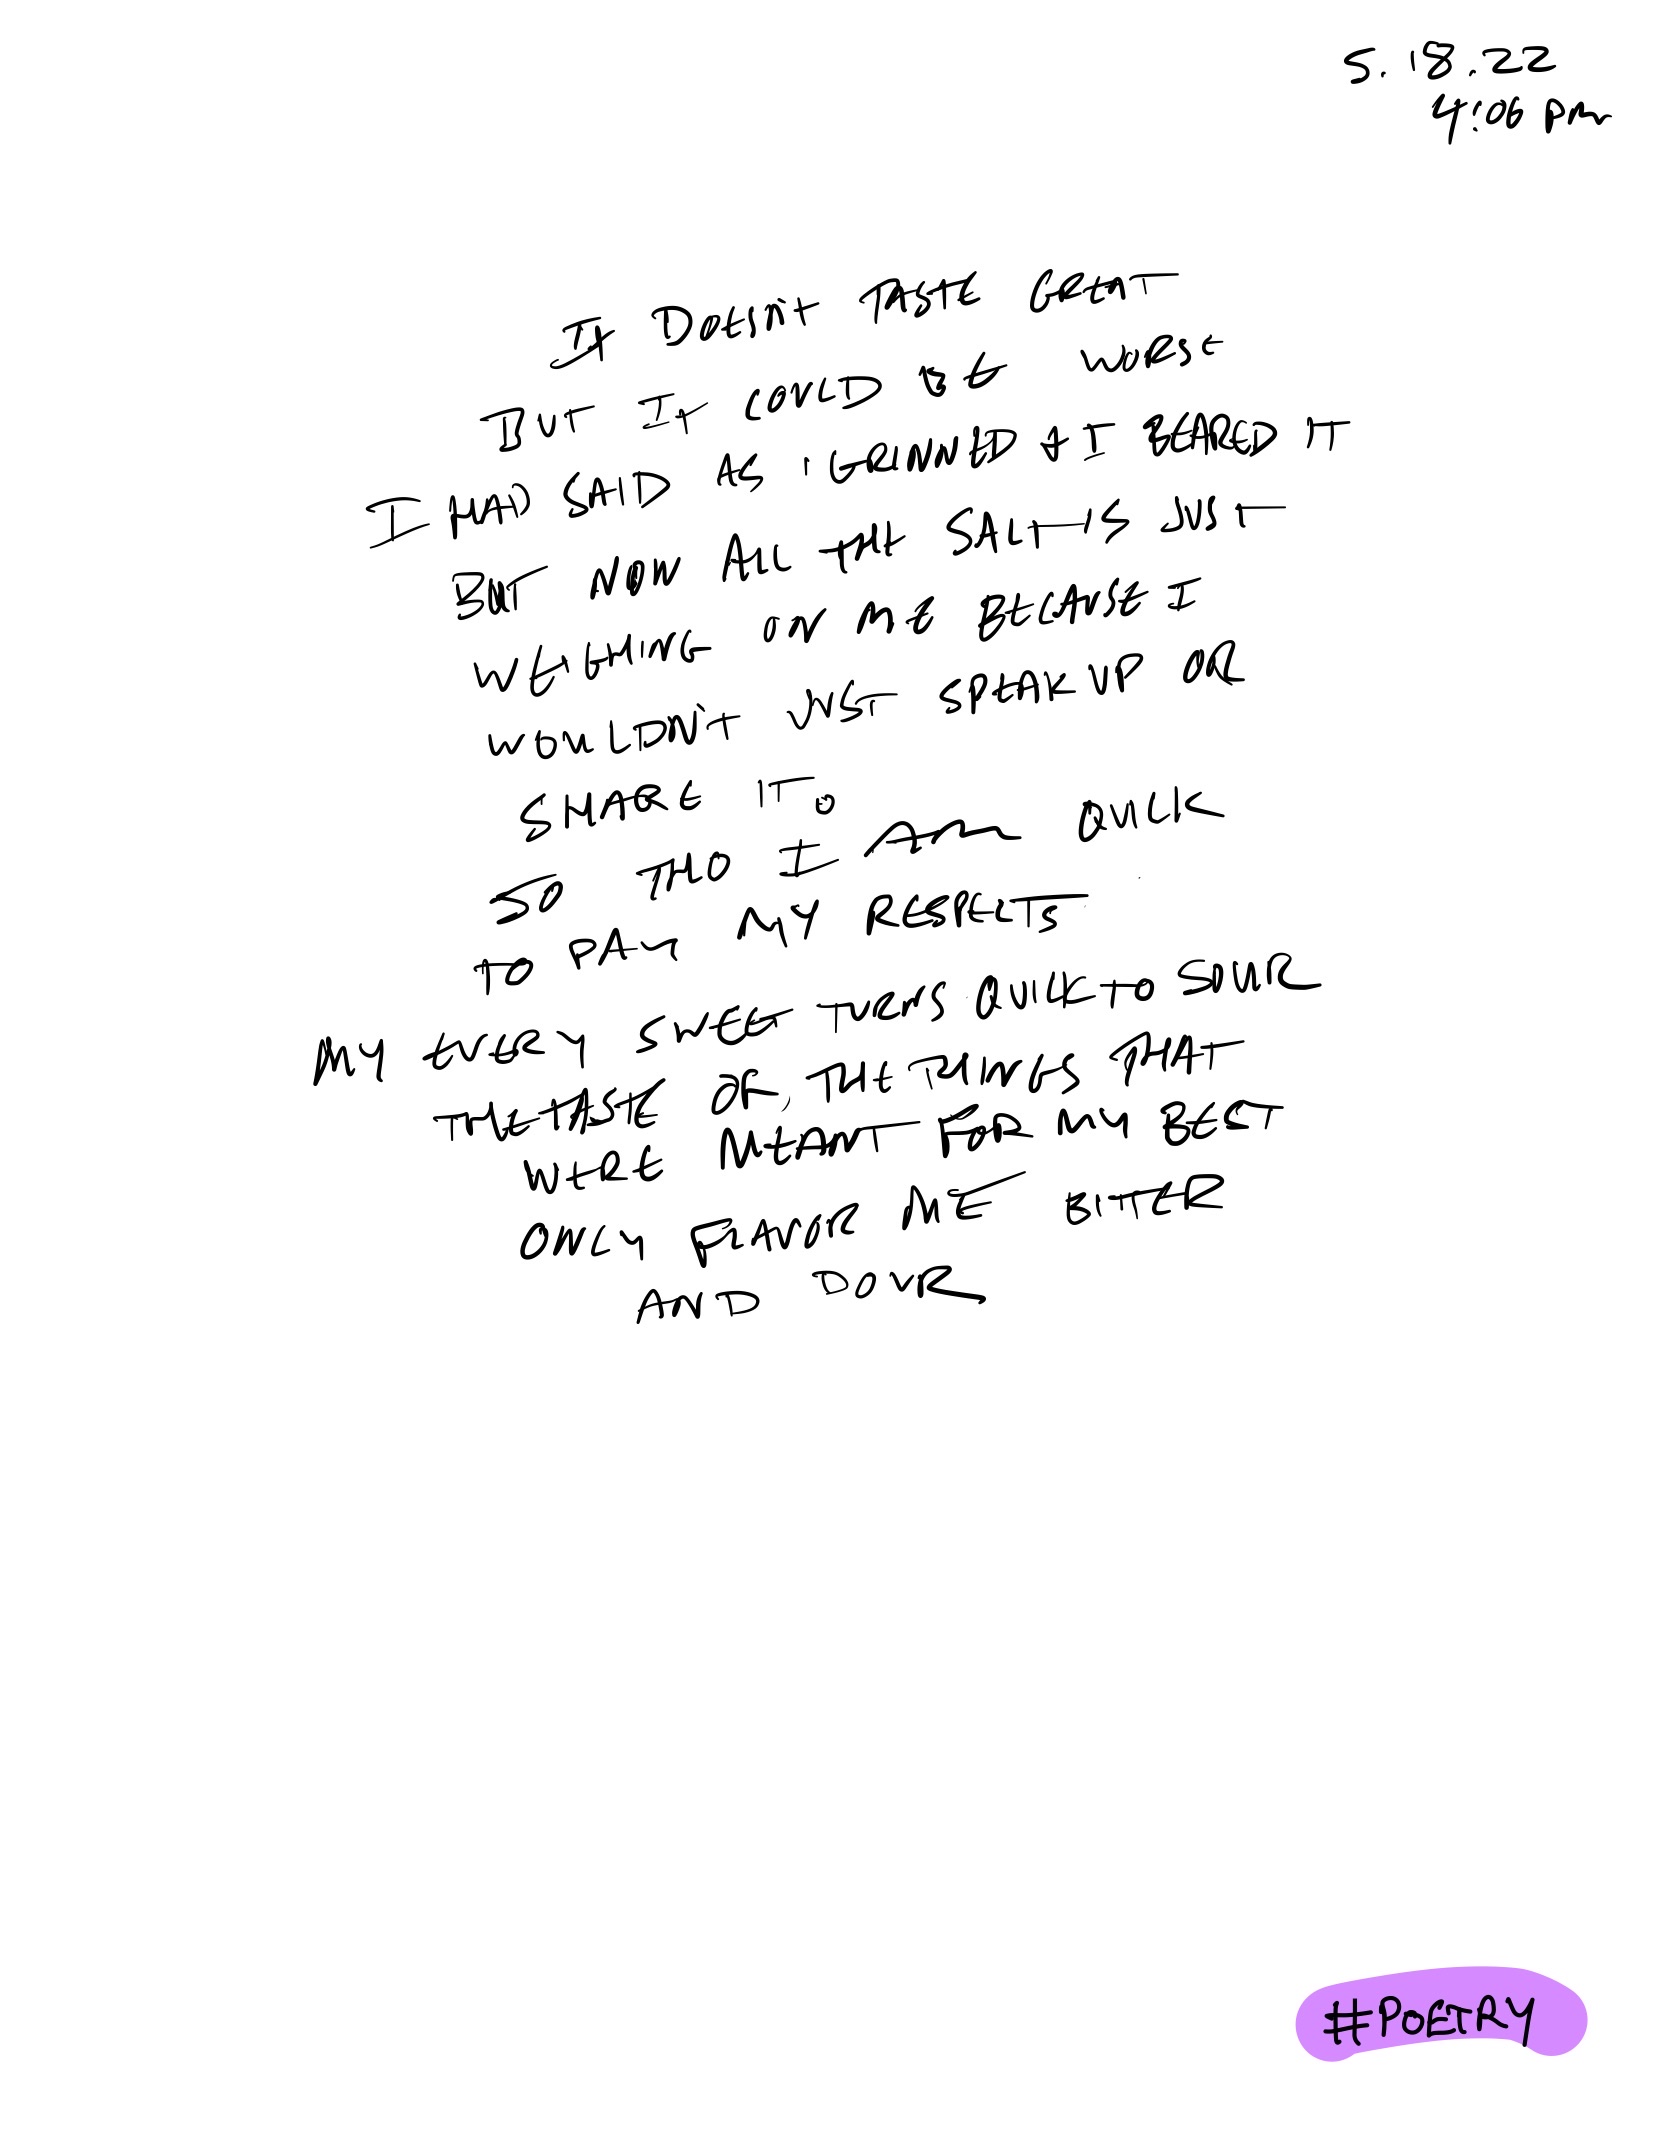 5.18.22
4:06 pm
IT DOESN'T TASTE GREAT
BUT IT COULD BE WORSE
I HAD SAID AS I GRINNED & I BEARED IT
BUT NOW ALL THE SALT IS JUST
WEIGHING ON ME BECAUSE I
WOULDN'T JUST SPEAK UP OR
SHARE IT.
SO THO I AM QUICK
TO PAY MY RESPECTS
MY EVERY SWEET TURNS QUICK TO SOUR
THE TASTE OF, THE THINGS THAT
WERE MEANT FOR MY BEST
ONLY FLAVOR ME BITTER
AND DOUR
#POETRY